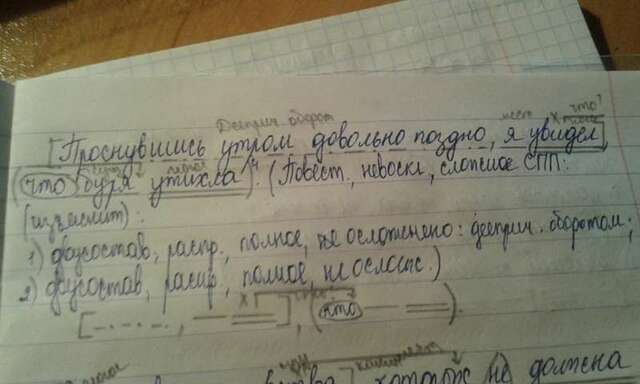 Дееприч. оборот что?
[Проснувшись утром довольно поздно, я увидел],
(что буря утихла). (Повест, невоскл, сложное СПП:
(изъяснит):
1) двусостав, распр., полное, осложнено: дееприч. оборотом;
2) двусостав, полное, не ослож.)
[-.-.-., — =], (что — =).
которые не должена